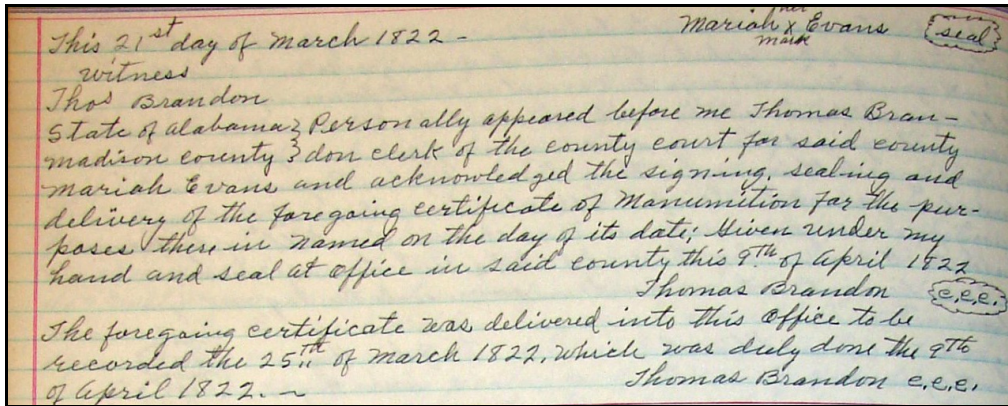 her
This 21st day of March 1822 - Mariah x Evans (seal)
mark
witness
Thos Brandon
State of Alabama } Personally appeared before me Thomas Bran-
Madison county } don clerk of the county court for said county
Mariah Evans and acknowledged the signing, sealing and
delivery of the foregoing certificate of Manumition for the pur-
poses there in named on the day of its date; Given under my
hand and seal at office in said county this 9th of April 1822
Thomas Brandon c.c.c.
The foregoing certificate was delivered into this office to be
recorded the 25th of March 1822, which was duly done the 9th
of April 1822. - Thomas Brandon c.c.c.